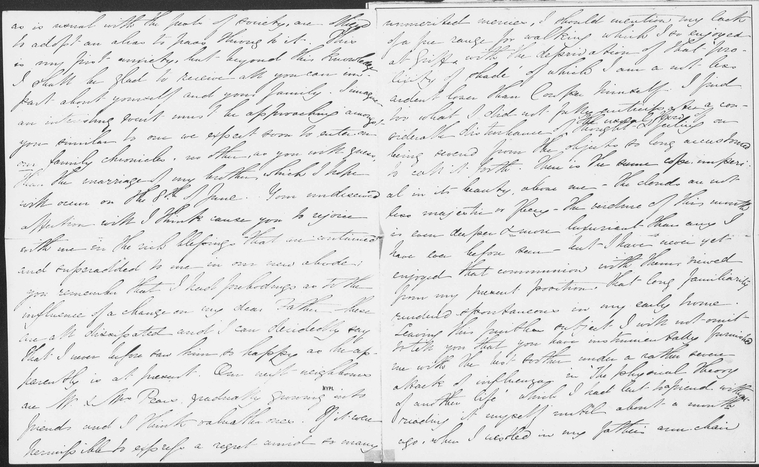 as is usual with the poets of society, are obliged
to adopt an alias to pass through it. This
is my first anxiety, but beyond this knowledge
I shall be glad to receive all you can im-
part about yourself and your family. I imagine
an interesting event must be approaching amongst
you similar to one we expect soon to enter in
our family chronicles, no other, as you will guess,
than the marriage of my brother which I hope
will occur on the 8th of June. Your undeserved
affection will I think cause you to rejoice
with me in the rich blessings that are continued
and superadded to me in our new abode.
you remember that I had forbodings as to the
influence of a change on my dear Father these
are all dissipated and I can decidedly say
that I never before saw him so happy as he ap-
parently is at present. Our next neighbours
are Mr & Mrs Pears gradually growing into
friends and I think valuable ones. If it were
permissible to express a regret amid so many
unmerited mercies, I should mention my lack
of a free range for walking which I so enjoyed
at Griff with the deprivation of that pro-
lixity of shade of which I am a not less
ardent lover than Cowper himself. I find
too what I did not fully anticipate a con-
siderable disturbance of the usual flow of thought & feeling on
being severed from the objects so long accustomed
to call it forth. There is the same cope imperi-
al in its beauty above me - the clouds are not
less majestic or fleecy the verdure of this month
is even deeper & more luxuriant than any I
have ever before seen - but I have never yet
enjoyed that communion with them viewed
from my present position, that long familiarity
rendered spontaneous in my early home.
Leaving this subject I will not omit
to tell you that you have instrumentally furnished
me with the best under a rather severe
attack of influenza in 'The physical Theory
of another life' which I had but
reading it myself until about a month
ago, when I nestled in my father's arm chair